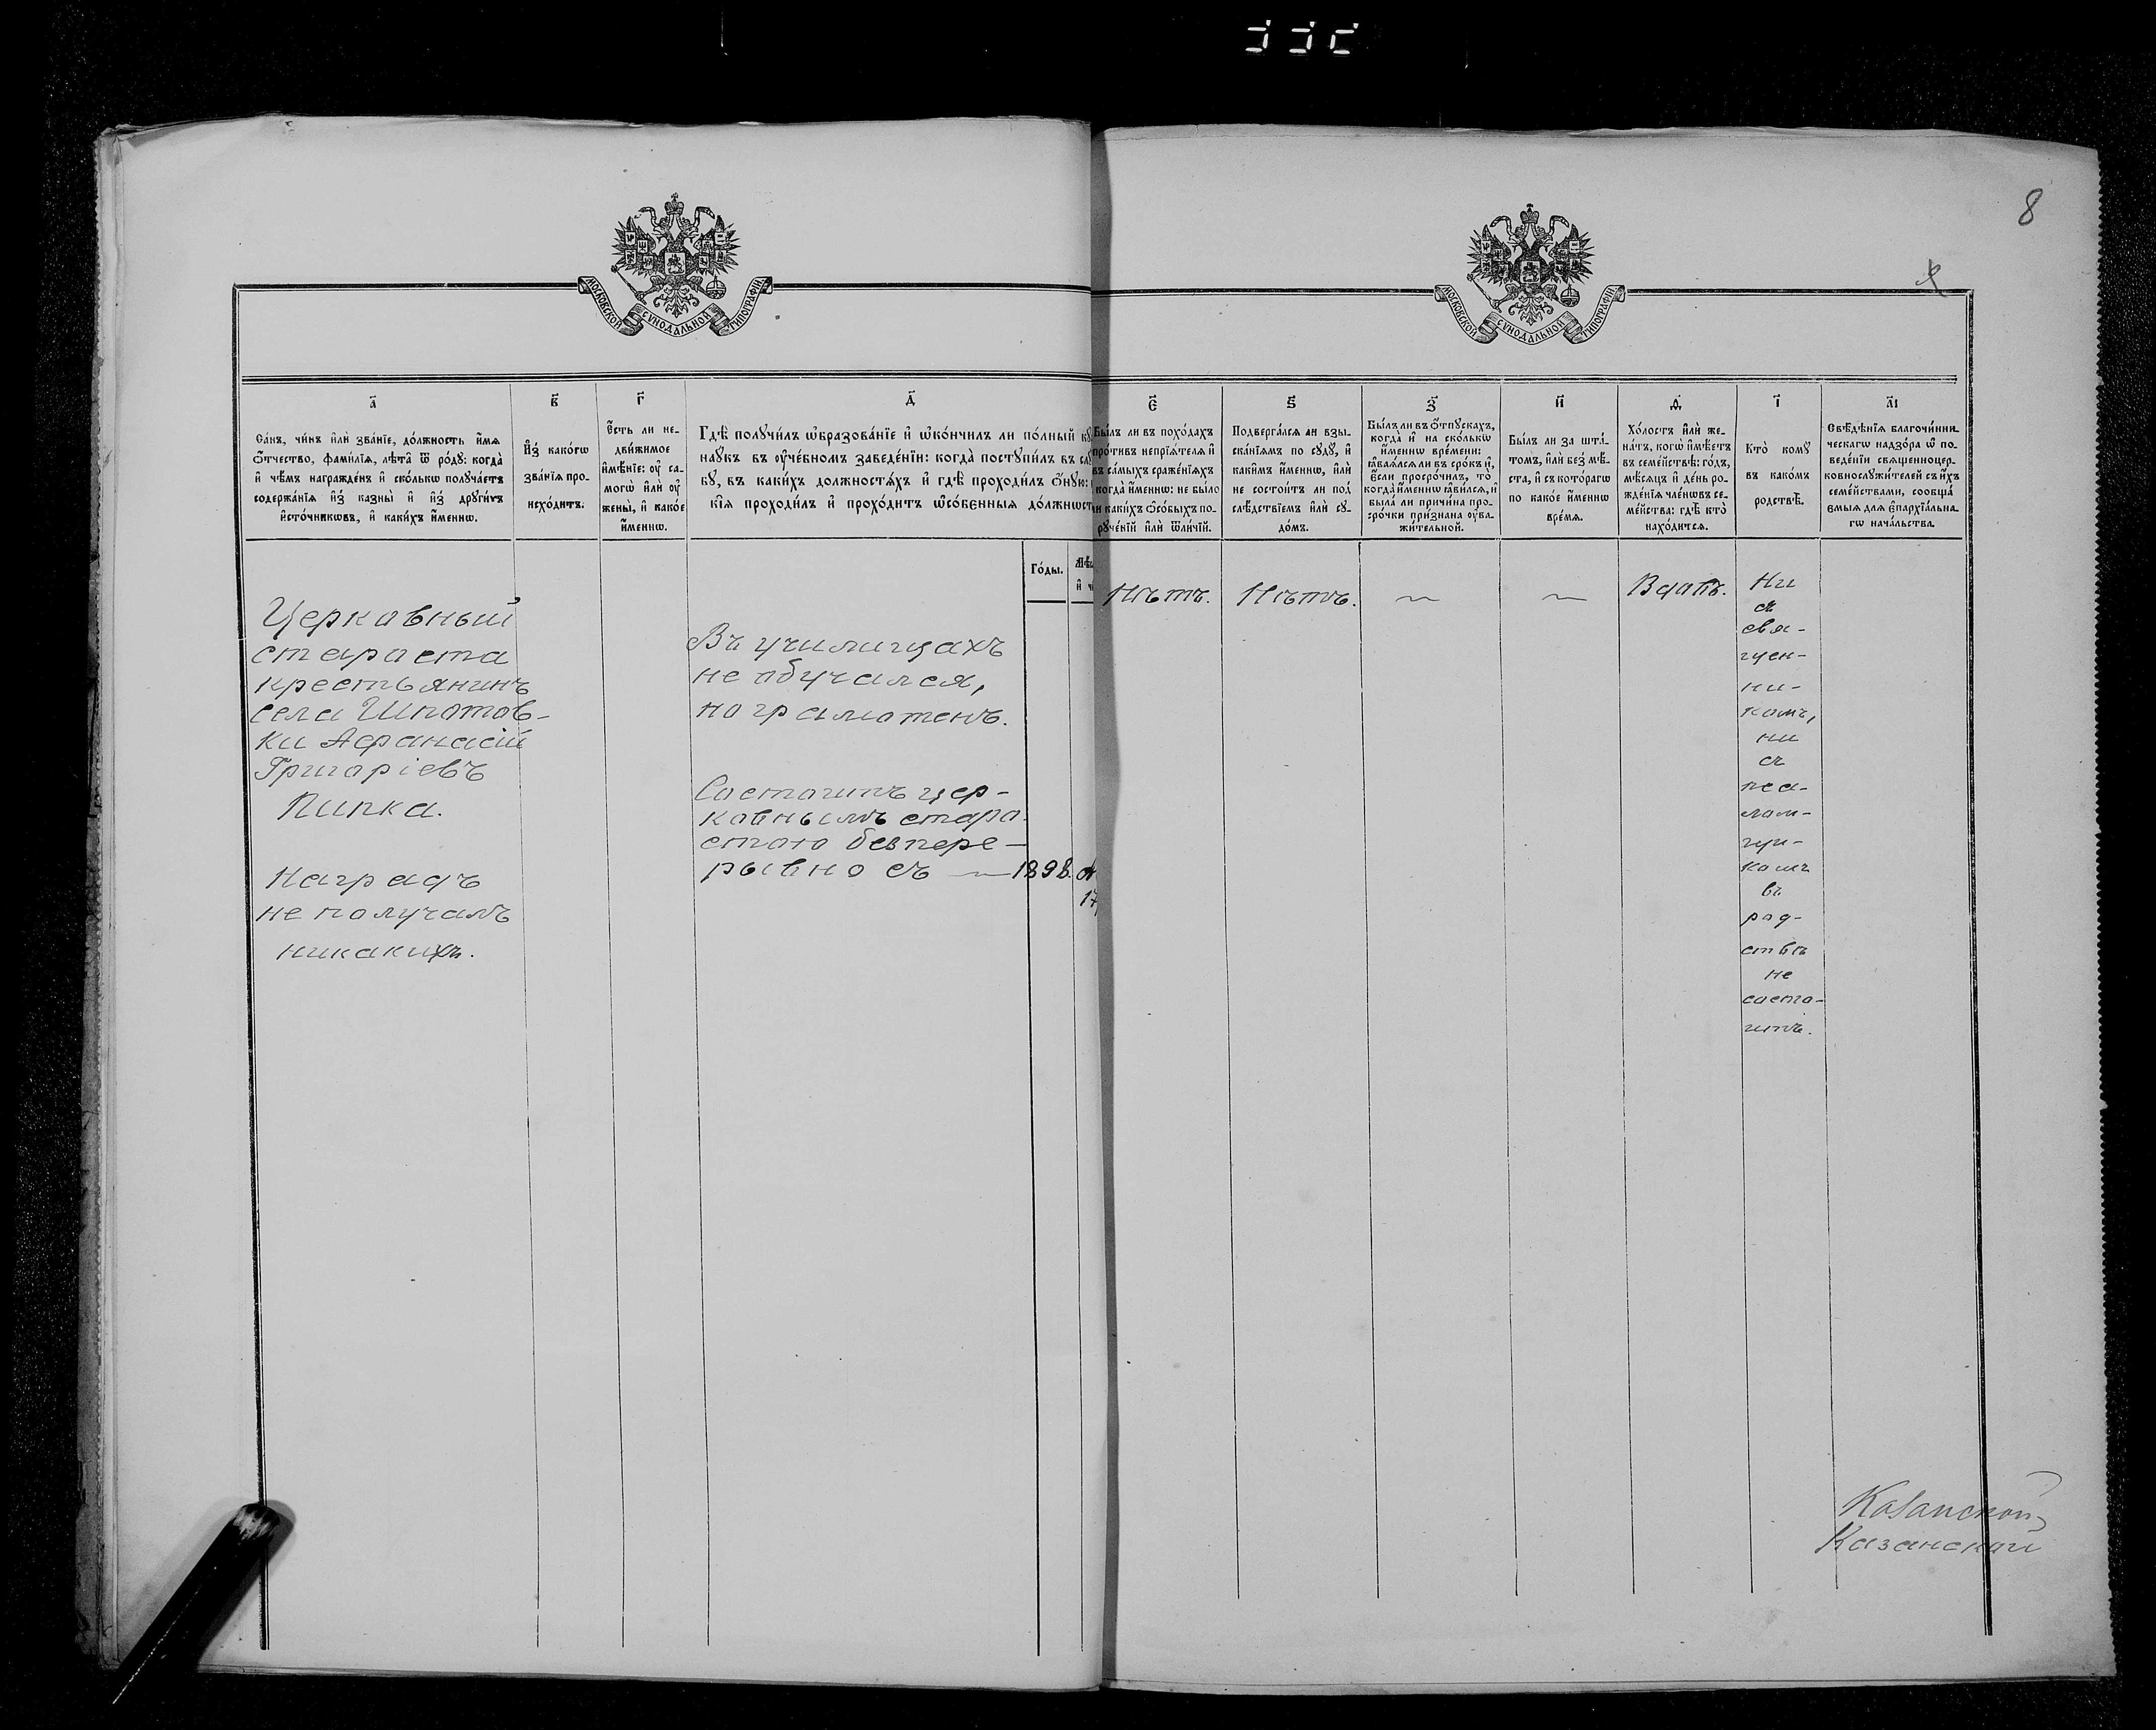 8
МОСКОВСКОЙ СѴНОДАЛЬНОЙ ТИПОГРАФІИ
МОСКОВСКОЙ СѴНОДАЛЬНОЙ ТИПОГРАФІИ
а҃
Са́нъ, чи́нъ и҆лѝ зва́нїе, до́лжность и҆́мѧ
ѻ҆́тчество, фами́лїѧ, лѣ́та ѿ ро́дꙋ: когда̀
и҆ чѣ́мъ награжде́нъ и҆ ско́лькѡ полꙋча́етъ
содержа́нїѧ и҆з̾ казны̀ и҆ и҆з̾ дрꙋги́хъ
и҆сто́чникѡвъ, и҆ каки́хъ и҆́меннѡ.
в҃
И҆з̾ како́гѡ
зва́нїѧ про-
исхо́дитъ.
г҃
Е҆́сть ли не-
дви́жимое
и҆мѣ́нїе: ᲂу҆ са-
могѡ̀ и҆лѝ ᲂу҆
жены̀, и҆ како́е
и҆́меннѡ.
д҃
Гдѣ̀ полꙋчи́лъ ѡ҆бразова́нїе и҆ ѡ҆ко́нчилъ ли по́лный
наꙋ́къ въ ᲂу҆че́бномъ заведе́нїи: когда̀ постꙋпи́лъ въ
бꙋ, въ каки́хъ должностѧ́хъ и҆ гдѣ̀ проходи́лъ ѻ҆́нꙋю:
кі́ѧ проходи́лъ и҆ прохо́дитъ ѡ҆со́бенныѧ
Го́ды.
є҃
Бы́лъ ли въ похо́дахъ
про́тивъ непрїѧ́телѧ и҆
въ са́мыхъ сраже́нїѧхъ
когда̀ и҆́меннѡ: не бы́ло
ли каки́хъ ѻ҆со́быхъ по-
рꙋче́нїй и҆лѝ ѿли́чїй.
ѕ҃
Подверга́лсѧ ли взы-
ска́нїѧмъ по сꙋдꙋ̀, и҆
каки́мъ и҆́меннѡ, и҆лѝ
не состои́тъ ли под̾
слѣ́дствїемъ и҆лѝ сꙋ-
до́мъ.
з҃
Бы́лъ ли въ ѻ҆́тпꙋскахъ,
когда̀ и҆ на ско́лькѡ
и҆́меннѡ вре́мени:
ꙗ҆влѧ́лсѧ ли въ сро́къ и҆,
є҆́сли просро́чилъ, то̀
когда̀ и҆́меннѡ ꙗ҆ви́лсѧ, и҆
была̀ ли причи́на про-
сро́чки при́знана ᲂу҆ва-
жи́тельной.
и҃
Бы́лъ ли за шта́-
томъ, и҆лѝ без̾ мѣ́-
ста, и҆ съ кото́рагѡ
по како́е и҆́меннѡ
вре́мѧ.
ѳ҃
Хо́лостъ и҆лѝ же-
на́тъ, когѡ̀ и҆мѣ́етъ
въ семе́йствѣ: го́дъ,
мѣ́сѧцъ и҆ де́нь ро-
жде́нїѧ чле́нѡвъ се-
ме́йства: гдѣ̀ кто̀
нахо́дитсѧ.
і҃
Кто̀ комꙋ̀
въ како́мъ
родствѣ̀.
а҃і
Свѣ́дѣнїѧ благочи́нни-
ческагѡ надзо́ра ѡ҆ по-
веде́нїи свѧщенноцер-
ковнослꙋжи́телей съ и҆́хъ
семе́йствами, сообща́-
емыѧ для є҆парх́їа́льна-
гѡ нача́льства.
Церковный
староста
крестьянинъ
села Шпотов-
ки Афанасій
Григоріевъ
Пипка.
Наградъ
не получалъ
никакихъ.
Въ училищахъ
не обучался,
но грамотенъ.
Состоитъ цер-
ковнымъ старо-
стою безпере-
рывно съ — 1898.
17
Нѣтъ.
Нѣтъ.
—
—
Вдовъ.
Ни
съ
свя-
щен-
ни-
комъ,
ни
съ
пса-
лом-
щи-
комъ
въ
род-
ствѣ
не
состо-
итъ.
Казанской
Казанской